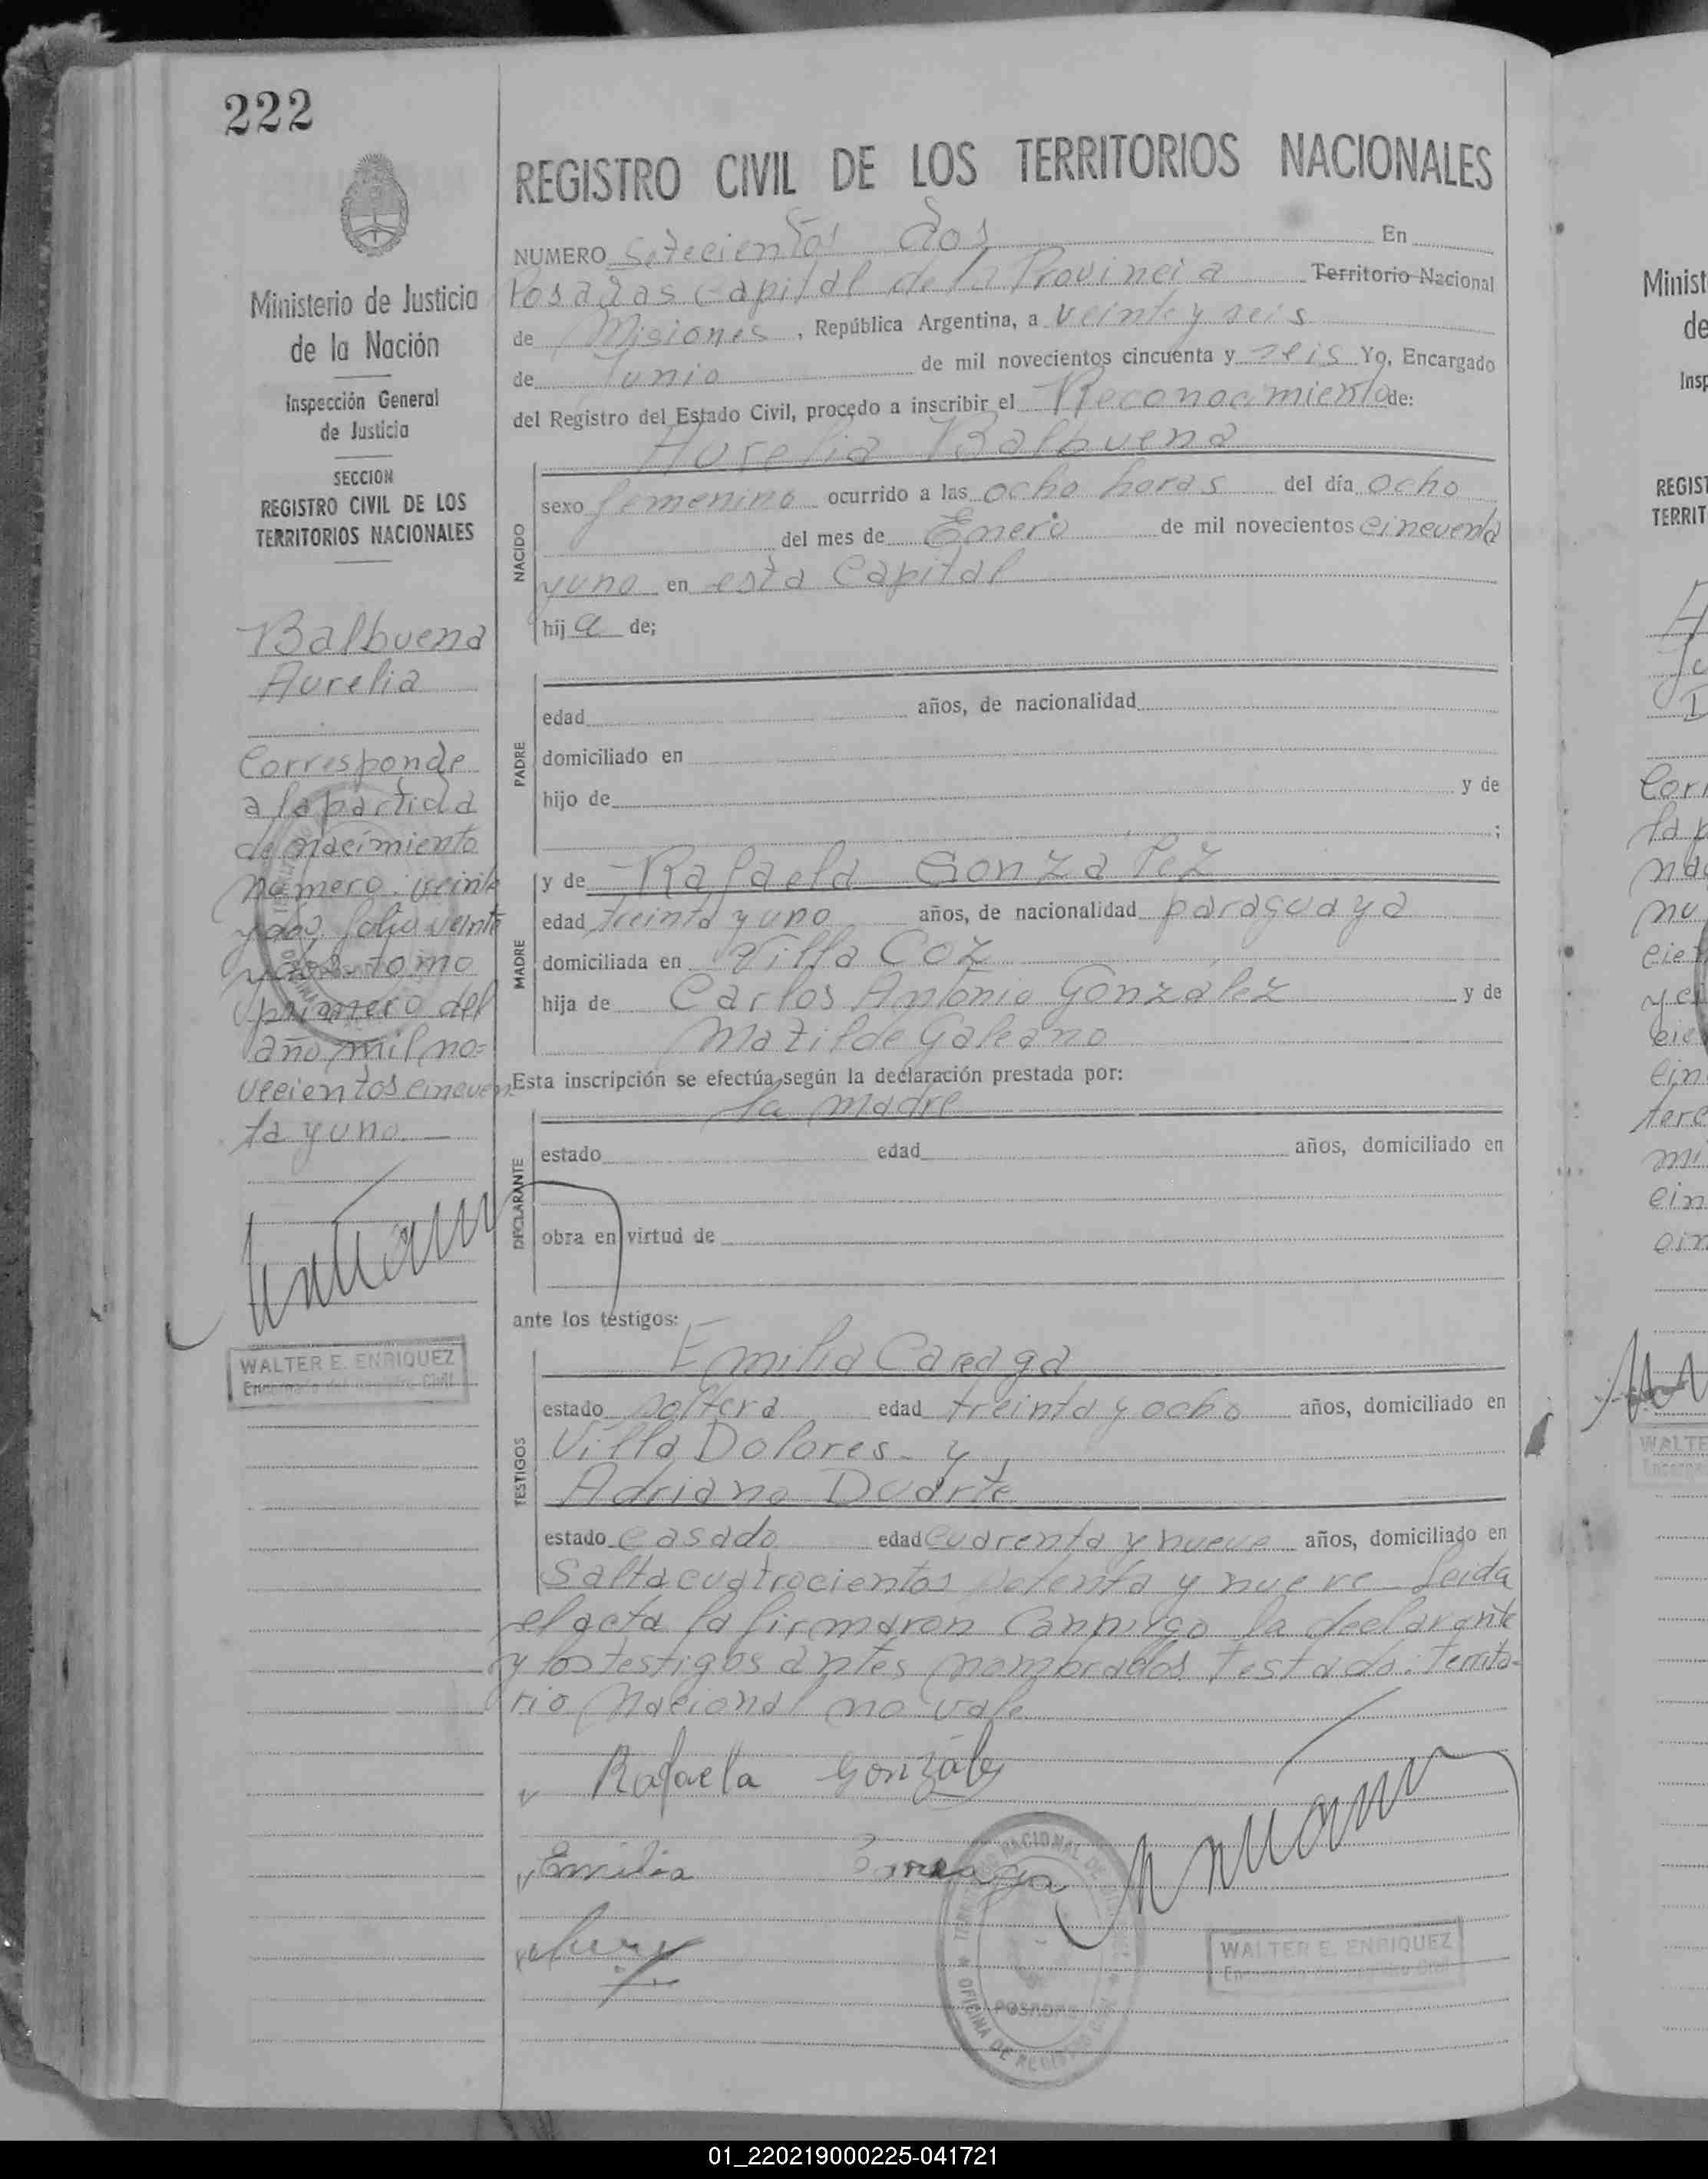 222
REGISTRO CIVIL DE LOS TERRITORIOS NACIONALES
Ministerio de Justicia
de la Nación
Inspección General
de Justicia
SECCION
REGISTRO CIVIL DE LOS
TERRITORIOS NACIONALES
Balbuena
Aurelia
Corresponde
a la partida
de nacimiento
número: veinte
y dos, folio veinte
y dos - tomo
primero del
año mil no=
vecientos cincuen
ta y uno. —
WALTER E. ENRIQUEZ
Encargado del Registro Civil
NUMERO Setecientos dos En
Posadas Capital de la Provincia Territorio Nacional
de Misiones, República Argentina, a veinte y seis
de Junio de mil novecientos cincuenta y seis Yo, Encargado
del Registro del Estado Civil, procedo a inscribir el Reconocimiento de:
Aurelia Balbuena
NACIDO
sexo femenino ocurrido a las ocho horas del día ocho
del mes de Enero de mil novecientos cincuenta
y uno en esta Capital
hija de;
PADRE
edad años, de nacionalidad
domiciliado en
hijo de y de
;
MADRE
y de Rafaela Gonzalez
edad treinta y uno años, de nacionalidad paraguaya
domiciliada en Villa Coz
hija de Carlos Antonio Gonzalez y de
Matilde Galeano
Esta inscripción se efectúa según la declaración prestada por:
la madre
DECLARANTE
estado edad años, domiciliado en
obra en virtud de
ante los testigos:
Emilia Careaga
TESTIGOS
estado soltera edad treinta y ocho años, domiciliado en
Villa Dolores - y
Adriano Duarte
estado casado edad cuarenta y nueve años, domiciliado en
Salta cuatrocientos setenta y nueve - Leida
el acta la firmaron conmigo la declarante
y los testigos antes nombrados Testado: Territo-
rio Nacional no vale
Rafaela Gonzáles
Emilia Careaga
POSADAS
OFICINA DE REGISTRO CIVIL
WALTER E. ENRIQUEZ
Encargado del Registro Civil
01_220219000225-041721